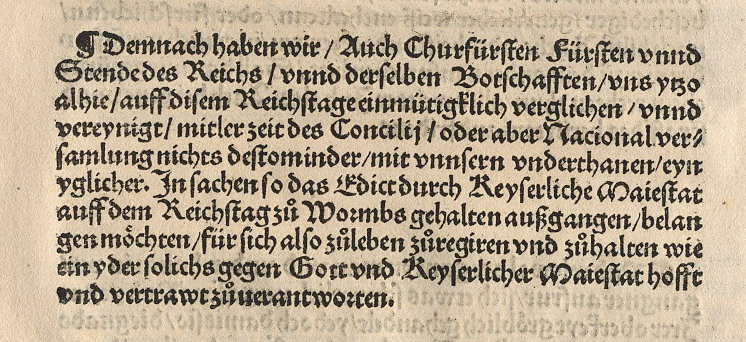 ¶ Demnach haben wir / Auch Churfürsten Fürsten vnnd
Stende des Reichs / vnnd derselben Botschafften / vns ytzo
alhie / auff disem Reichstage einmütigklich verglichen / vnnd
vereynigt / mitler zeit des Concilij / oder aber Nacional ver⸗
samlung nichts destominder / mit vnnsern vnderthanen / eyn
yglicher. In sachen so das Edict durch Keyserliche Maiestat
auff dem Reichstag zů Wormbs gehalten außgangen / belan
gen möchten / für sich also zůleben zůregiren vnd zůhalten wie
ein yder solichs gegen Gott vnd Keyserlicher Maiestat hofft
vnd vertrawt zůuerantworten.